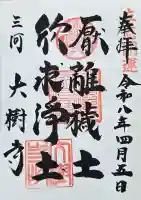 奉拝
令和八年四月五日
厭離穢土
欣求浄土
三河 大樹寺